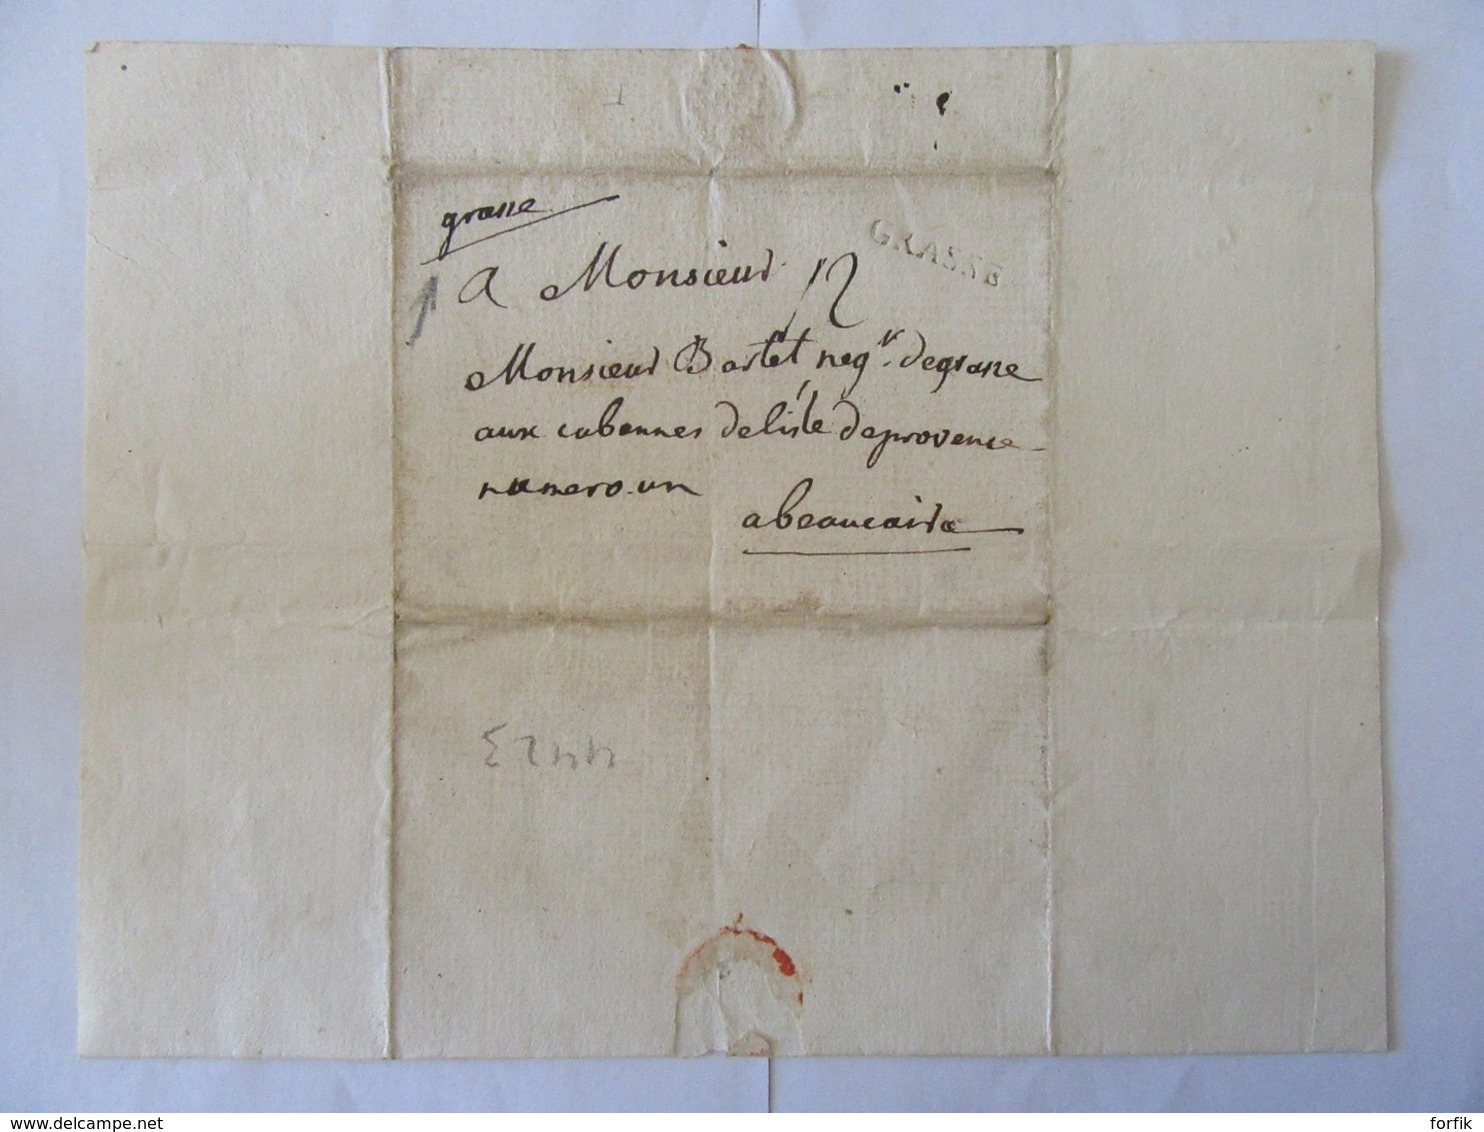 grasse
GRASSE
A Monsieur
12
Monsieur Bartet negr. degrasse
aux cabannes delisle deprovence
numero un
abeaucaire
4423
delcampe.net
forfik